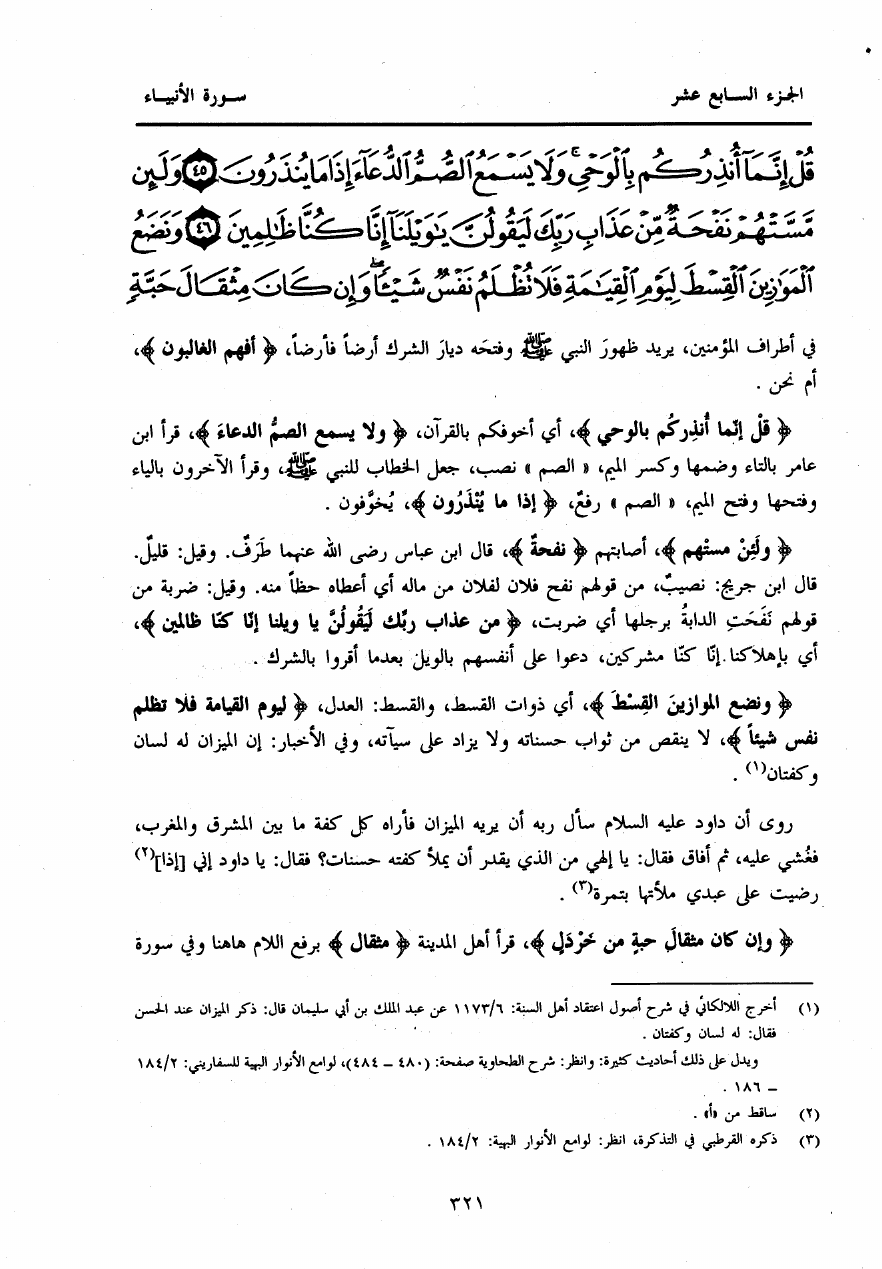 الجزء السابع عشر
سورة الأنبياء
قُلْ إِنَّمَآ أُنذِرُكُم بِٱلْوَحْىِ ۚ وَلَا يَسْمَعُ ٱلصُّمُّ ٱلدُّعَآءَ إِذَا مَا يُنذَرُونَ ٤٥ وَلَئِن
مَّسَّتْهُمْ نَفْحَةٌ مِّنْ عَذَابِ رَبِّكَ لَيَقُولُنَّ يَٰوَيْلَنَآ إِنَّا كُنَّا ظَٰلِمِينَ ٤٦ وَنَضَعُ
ٱلْمَوَٰزِينَ ٱلْقِسْطَ لِيَوْمِ ٱلْقِيَٰمَةِ فَلَا تُظْلَمُ نَفْسٌ شَيْـًٔا ۖ وَإِن كَانَ مِثْقَالَ حَبَّةٍ
في أطراف المؤمنين، يريد ظهورَ النبي ﷺ وفتحَه ديارَ الشرك أرضاً فأرضاً، ﴿ أفهم الغالبون ﴾،
أم نحن .
﴿ قلْ إنّما أُنذِرُكُم بالوحي ﴾، أي أخوفكم بالقرآن، ﴿ ولا يسمع الصمُّ الدعاءَ ﴾، قرأ ابن
عامر بالتاء وضمها وكسر الميم، « الصم » نصب، جعل الخطاب للنبي ﷺ، وقرأ الآخرون بالياء
وفتحها وفتح الميم، « الصم » رفعٌ، ﴿ إذا ما يُنْذَرُون ﴾، يُخوَّفون .
﴿ ولَئِنْ مستْهم ﴾، أصابتهم ﴿ نفحةٌ ﴾، قال ابن عباس رضى الله عنهما طَرَفٌ. وقيل: قليلٌ.
قال ابن جريج: نصيبٌ، من قولهم نفح فلان لفلان من ماله أي أعطاه حظاً منه. وقيل: ضربة من
قولهم نَفَحَتِ الدابةُ برجلها أي ضربت، ﴿ من عذاب ربِّك لَيَقُولُنَّ يا ويلنا إنّا كنّا ظالمين ﴾،
أي بإهلاكنا.إنّا كنّا مشركين، دعوا على أنفسهم بالويل بعدما أقروا بالشرك .
﴿ ونضع الموازينَ القِسْطَ ﴾، أي ذوات القسط، والقسط: العدل، ﴿ ليوم القيامة فلا تظلم
نفس شيئاً ﴾، لا ينقص من ثواب حسناته ولا يزاد على سيآته، وفي الأخبار: إن الميزان له لسان
وكفتان(١) .
روى أن داود عليه السلام سأل ربه أن يريه الميزان فأراه كل كفة ما بين المشرق والمغرب،
فغُشي عليه، ثم أفاق فقال: يا إلهي من الذي يقدر أن يملأ كفته حسنات؟ فقال: يا داود إني [إذا](٢)
رضيت على عبدي ملأتها بتمرة(٣) .
﴿ وإن كان مثقالَ حبةٍ من خَرْدَلٍ ﴾، قرأ أهل المدينة ﴿ مثقال ﴾ برفع اللام هاهنا وفي سورة
(١) أخرج اللالكائي في شرح أصول اعتقاد أهل السنة: ١١٧٣/٦ عن عبد الملك بن أبي سليمان قال: ذكر الميزان عند الحسن
فقال: له لسان وكفتان .
ويدل على ذلك أحاديث كثيرة: وانظر: شرح الطحاوية صفحة: (٤٨٠ – ٤٨٤)، لوامع الأنوار البهية للسفاريني: ١٨٤/٢
– ١٨٦ .
(٢) ساقط من «أ» .
(٣) ذكره القرطبي في التذكرة، انظر: لوامع الأنوار البهية: ١٨٤/٢ .
٣٢١